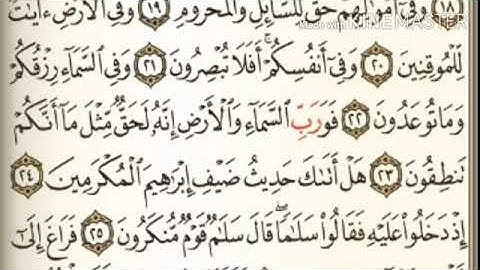 ١٨ وَفِيٓ أَمْوَٰلِهِمْ حَقٌّ لِّلسَّآئِلِ وَٱلْمَحْرُومِ ١٩ وَفِي ٱلْأَرْضِ ءَايَٰتٌ
Made with KINEMASTER
لِّلْمُوقِنِينَ ٢٠ وَفِيٓ أَنفُسِكُمْ ۚ أَفَلَا تُبْصِرُونَ ٢١ وَفِي ٱلسَّمَآءِ رِزْقُكُمْ
وَمَا تُوعَدُونَ ٢٢ فَوَرَبِّ ٱلسَّمَآءِ وَٱلْأَرْضِ إِنَّهُۥ لَحَقٌّ مِّثْلَ مَآ أَنَّكُمْ
تَنطِقُونَ ٢٣ هَلْ أَتَىٰكَ حَدِيثُ ضَيْفِ إِبْرَٰهِيمَ ٱلْمُكْرَمِينَ ٢٤
إِذْ دَخَلُوا۟ عَلَيْهِ فَقَالُوا۟ سَلَٰمًا ۖ قَالَ سَلَٰمٌ قَوْمٌ مُّنكَرُونَ ٢٥ فَرَاغَ إِلَىٰٓ